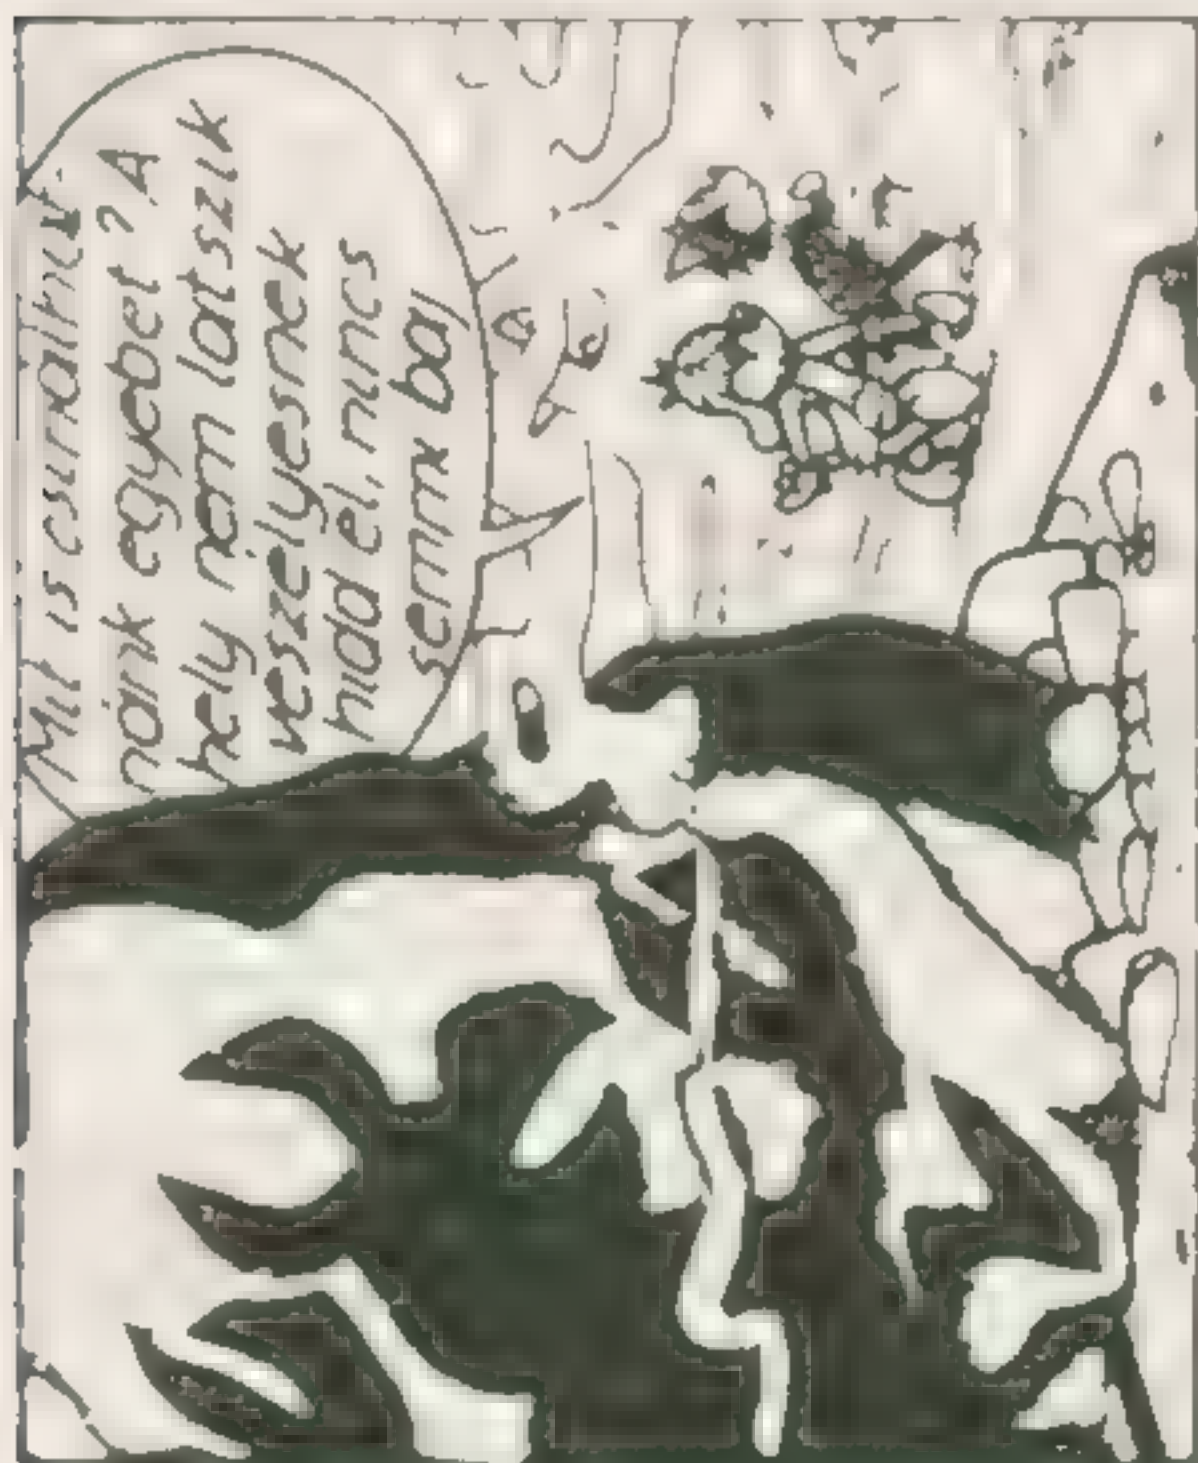 Mit is csinálhat
nánk egyebet? A
hely nem latszik
veszelyesnek
hidd el, nincs
semmi baj